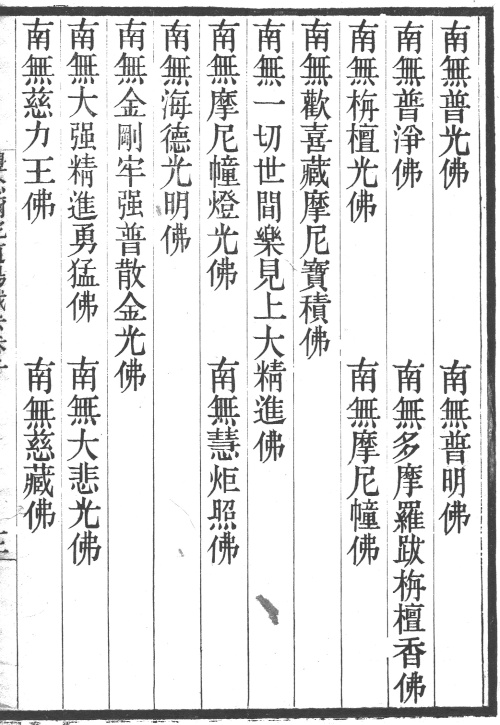 南無普光佛　南無普明佛
南無普淨佛　南無多摩羅跋栴檀香佛
南無栴檀光佛　南無摩尼幢佛
南無歡喜藏摩尼寶積佛
南無一切世間樂見上大精進佛
南無摩尼幢燈光佛　南無慧炬照佛
南無海德光明佛
南無金剛牢强普散金光佛
南無大强精進勇猛佛　南無大悲光佛
南無慈力王佛　南無慈藏佛